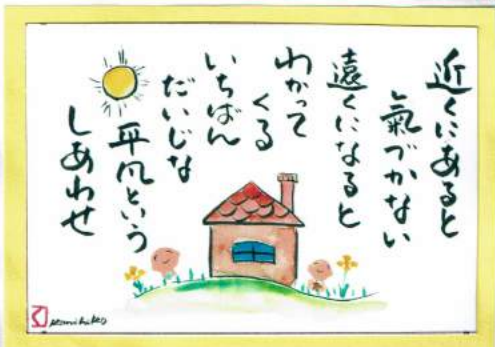 近くにあると
氣づかない
遠くになると
わかって
くる
いちばん
だいじな
平凡という
しあわせ